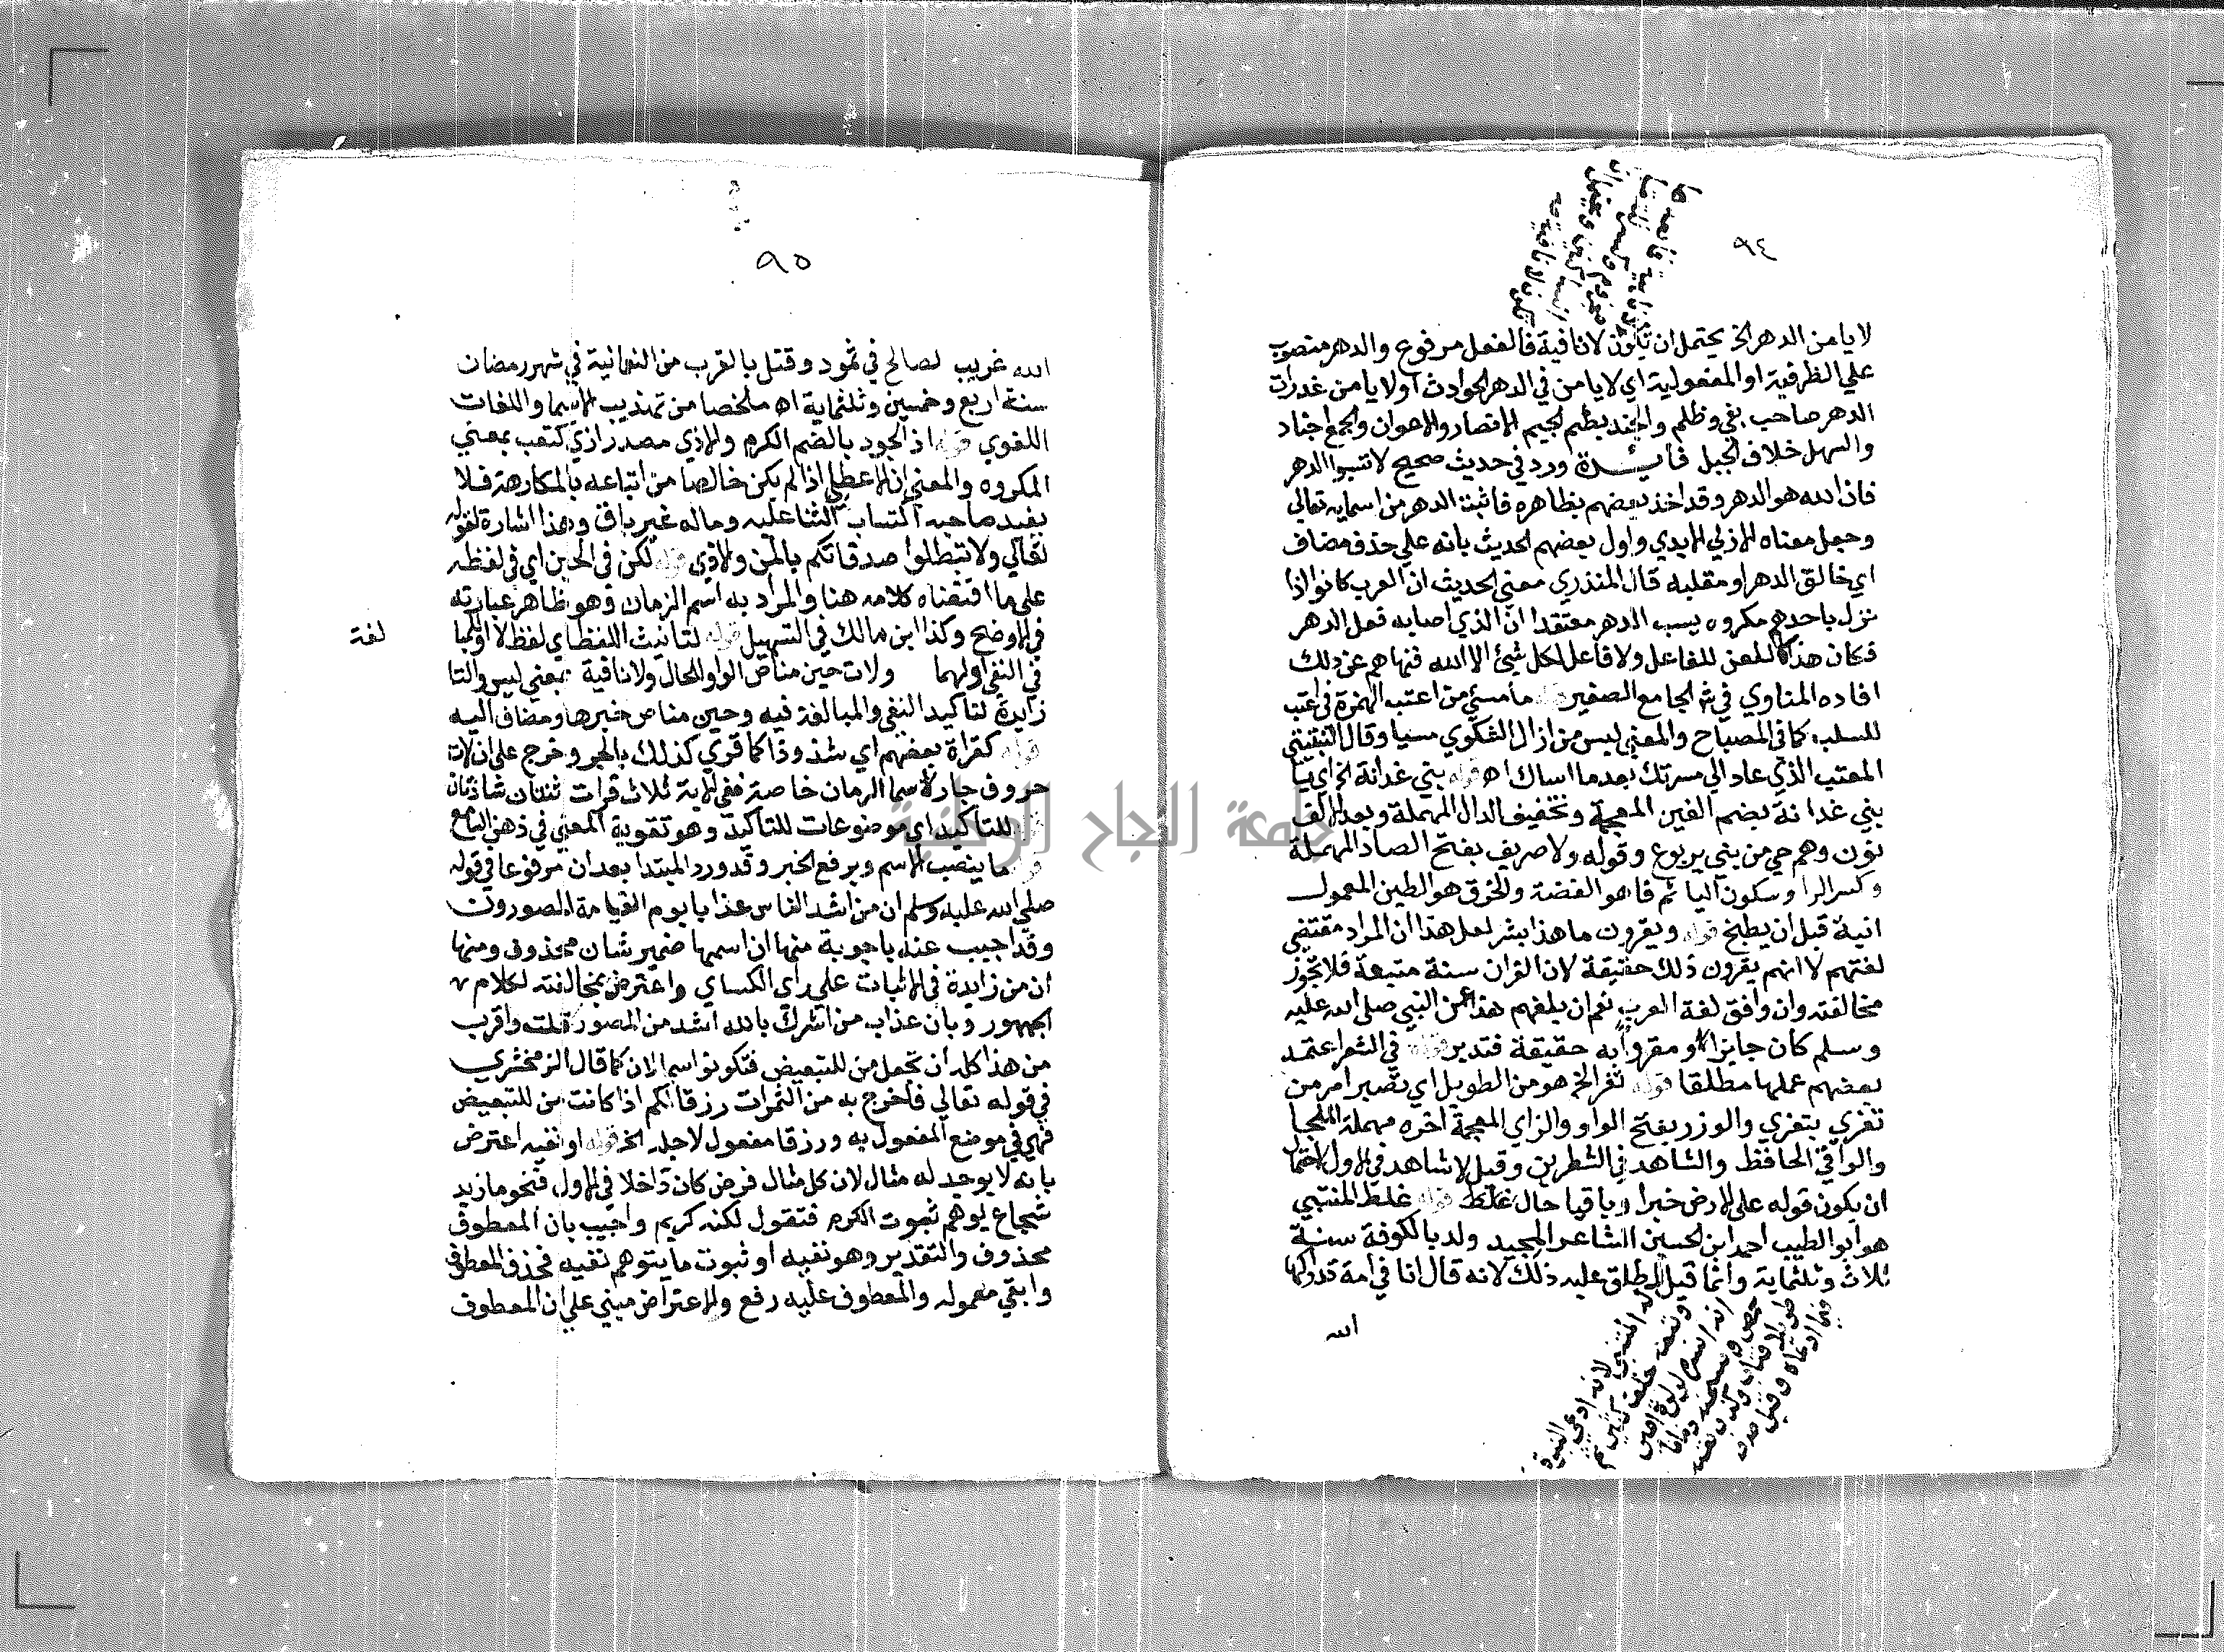 ٩٤
لا يامن الدهر الخ يحتمل ان تكون لا نافية فالفعل مرفوع والدهر منصوب
علي الظرفية او المفعولية اي لا يامن في الدهر الحوادث او لا يامن غدرات
الدهر صاحب بغي وظلم والجند بضم الجيم الانصار والاعوان والجمع اجناد
والسهل خلاف الجبل فايـدة ورد في حديث صحيح لا تسبوا الدهر
فان الله هو الدهر وقد اخذ بعضهم بظاهره فاثبت الدهر من اسمايه تعالي
وجعل معناه الازلي الابدي واول بعضهم الحديث بانه علي حذف مضاف
اي خالق الدهر او مقلبه قال المنذري معني الحديث ان العرب كانوا اذا
نزل باحدهم مكروه يسب الدهر معتقدا ان الذي اصابه فعل الدهر
فكان هذا كاللعن للفاعل ولا فاعل لكل شيئ الا الله فنهاهم عن ذلك
افاده المناوي في شر الجامع الصغير قوله ما مسئ من اعتب الهمزة في اعتب
للسلب كما في المصباح والمعني ليس من ازال الشكوي مسيا وقال
المعتب الذي عاد الي مسرتك بعدما اساك اه قوله بني غدانة الخ اي يا
بني غدانة بضم الغين المعجمة وتخفيف الدال المهملة وبعد الالف
نون وهم حي من بني يربوع وقوله ولا صريف بفتح الصاد المهملة
وكسر الرا وسكون اليا ثم فا هو الفضة والخزف هو الطين المعمول
انية قبل ان يطبخ قوله ويقرون ما هذا بشر لعل هذا ان المراد مقتضي
لغتهم لا انهم يقرون ذلك حقيقة لان القران سنة متبعة فلا تجوز
مخالفته وان وافق لغة العرب نعم ان بلغهم هذا عن النبي صلي الله عليه
وسلم كان جايزا او مقروا به حقيقة فتدبر قوله في الشعر اعتمد
بعضهم عملها مطلقا قوله تعز الخ هو من الطويل اي تصبر امر من
تعزي يتعزي والوزر بفتح الواو والزاي المعجمة اخره مهملة الملجا
والواقي الحافظ والشاهد في الشطرين وقيل لا شاهد في الاول لاحتمال
ان يكون قوله علي الارض خبرا وباقيا حال غلط قوله غلط المتنبي
هو ابو الطيب احمد ابن الحسين الشاعر المجيد ولد بالكوفة سنة
ثلاث وثلثماية وانما قيل يطلق عليه ذلك لانه قال انا في امة تداركها
الله
٩٥
الله غريب لصالح في ثمود وقتل بالقرب من النعمانية في شهر رمضان
سنة اربع وخمسين وثلثماية اه ملخصا من تهذيب الاسما واللغات
اللغوي قوله اذ الجود بالضم الكرم والاذي مصدر اذي كتعب بمعني
المكروه والمعني ان الاعطا اذا لم يكن خالصا من اتباعه بالمكارهة فلا
يفيد صاحبه اكتساب الثنا عليه وماله غير باق وهذا اشارة لقوله
تعالي ولا تبطلوا صدقاتكم بالمن والاذي قوله لكن في الحين اي في لفظه
علي ما اقتضاه كلامه هنا والمراد به اسم الزمان وهو ظاهر عبارته
في الاوضح وكذا ابن مالك في التسهيل قوله لتانيث اللفظ اي لفظ لا
لغة
في النفي او لهما ولات حين مناص الواو للحال ولا نافية بمعني ليس والتا
زايدة لتاكيد النفي والمبالغة فيه وحين مناص خبرها ومضاف اليه
قوله كقراة بعضهم اي شذوذا كما قري كذلك بالجر وخرج علي ان لات
حروف جار لاسما الزمان خاصة ففي الاية ثلاث قرات ثنتان شاذتان
للتاكيد اي موضوعات للتاكيد وهو تقوية المعني في ذهن السامع
ما ينصب الاسم ويرفع الخبر وقد ورد المبتدا بعد ان مرفوعا في قوله
صلي الله عليه وسلم ان من اشد الناس عذابا يوم القيامة المصورون
وقد اجيب عنه باجوبة منها ان اسمها ضمير شان محذوف ومنها
ان من زايدة في الاثبات علي راي الكساي واعترض بمخالفته لكلام
الجمهور وبان عذاب من اشرك بالله اشد من المصور قلت واقرب
من هذا كله ان تجعل من للتبعيض فتكون اسما لان كما قال الزمخشري
في قوله تعالي فاخرج به من الثمرات رزقا لكم اذا كانت من للتبعيض
فهي في موضع المفعول به ورزقا مفعول لاجله الخ قوله او نفيه اعترض
بانه لا يوجد له مثال لان كل مثال فرض كان داخلا في الاول فنحو ما زيد
شجاع يوهم ثبوت الكرم فتقول لكنه كريم واجيب بان المعطوف
محذوف والتقدير وهو نفيه او ثبوت ما يتوهم نفيه فحذف المعطوف
وابقي معموله والمعطوف عليه رفع والاعتراض مبني علي ان المعطوف
جامعة النجاح الوطنية